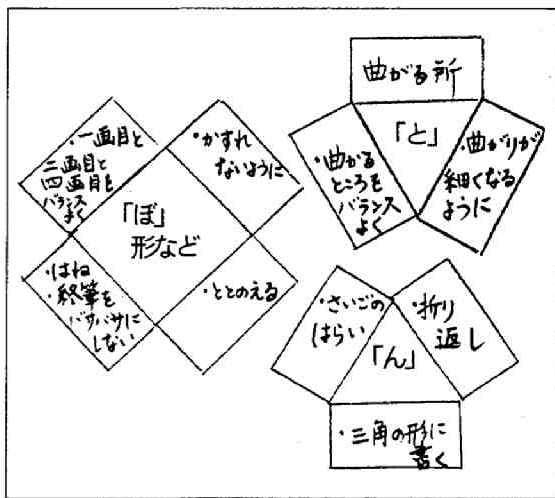 ・一画目と
二画目と
四画目を
バランス
よく
・かすれ
ないように
「ぼ」
形など
・はね
・終筆を
バサバサに
しない
・ととのえる
曲がる所
「と」
・曲がる
ところを
バランス
よく
・曲がりが
細くなる
ように
・さいごの
はらい
・折り
返し
「ん」
・三角の形に
書く